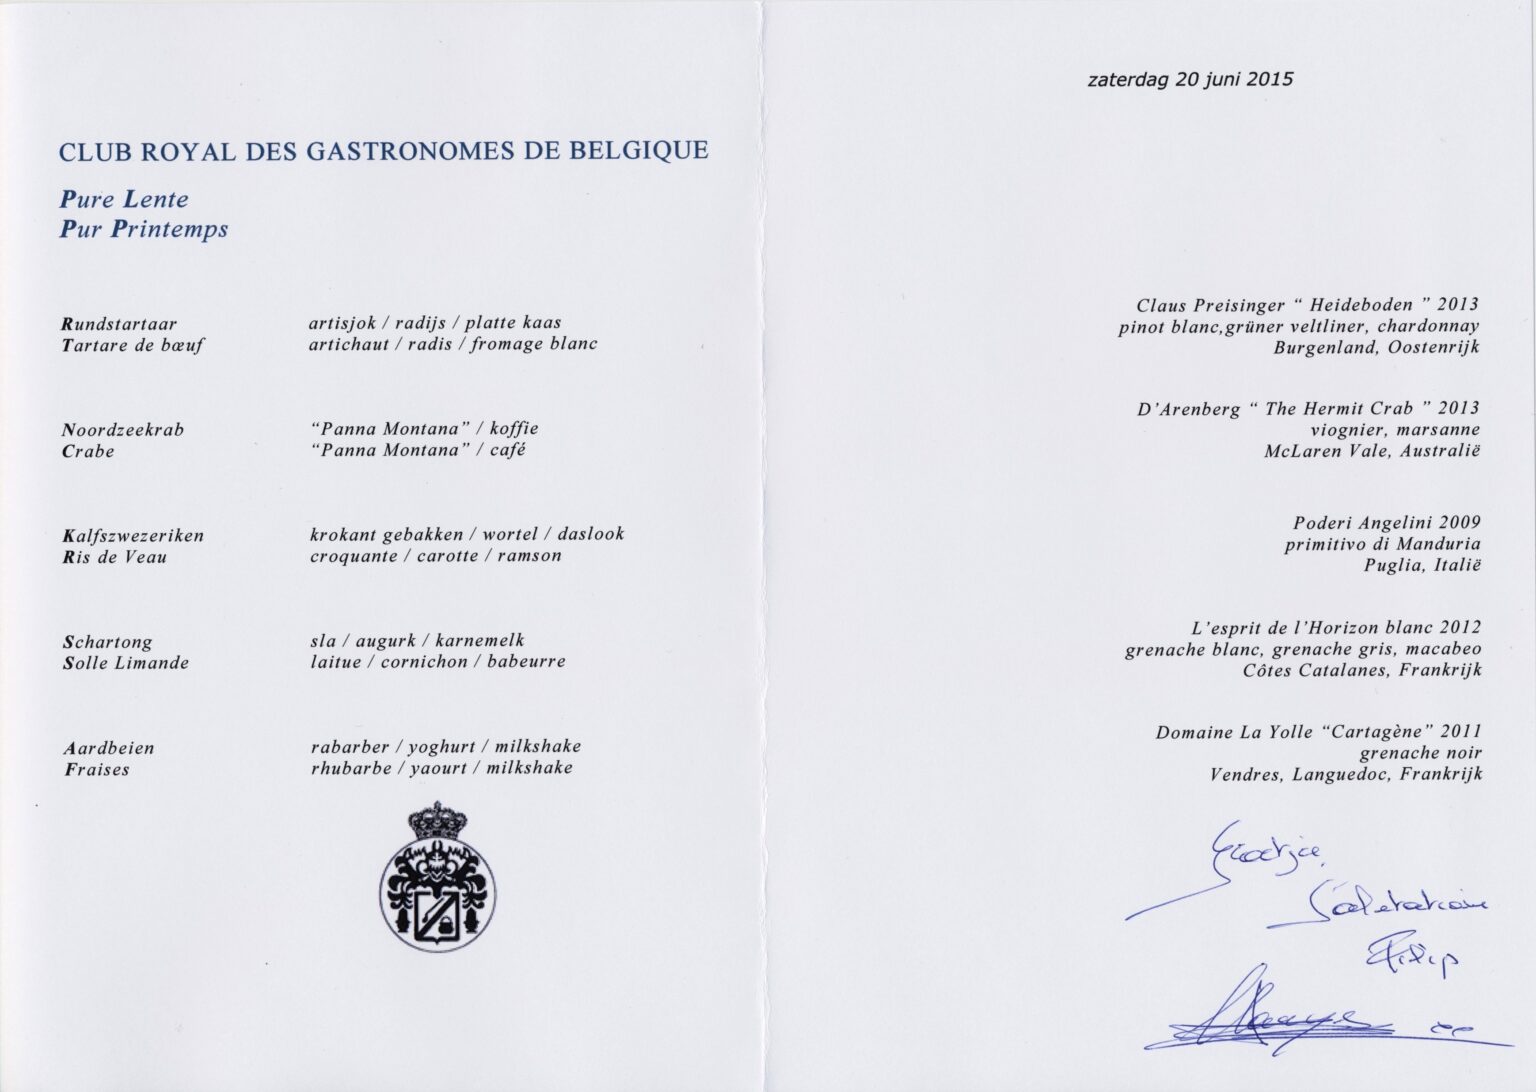 zaterdag 20 juni 2015
CLUB ROYAL DES GASTRONOMES DE BELGIQUE
Pure Lente
Pur Printemps
Rundstartaar artisjok / radijs / platte kaas
Tartare de bœuf artichaut / radis / fromage blanc
Noordzeekrab “Panna Montana” / koffie
Crabe “Panna Montana” / café
Kalfszwezeriken krokant gebakken / wortel / daslook
Ris de Veau croquante / carotte / ramson
Schartong sla / augurk / karnemelk
Solle Limande laitue / cornichon / babeurre
Aardbeien rabarber / yoghurt / milkshake
Fraises rhubarbe / yaourt / milkshake
Claus Preisinger “ Heideboden ” 2013
pinot blanc,grüner veltliner, chardonnay
Burgenland, Oostenrijk
D’Arenberg “ The Hermit Crab ” 2013
viognier, marsanne
McLaren Vale, Australië
Poderi Angelini 2009
primitivo di Manduria
Puglia, Italië
L’esprit de l’Horizon blanc 2012
grenache blanc, grenache gris, macabeo
Côtes Catalanes, Frankrijk
Domaine La Yolle “Cartagène” 2011
grenache noir
Vendres, Languedoc, Frankrijk
Filip